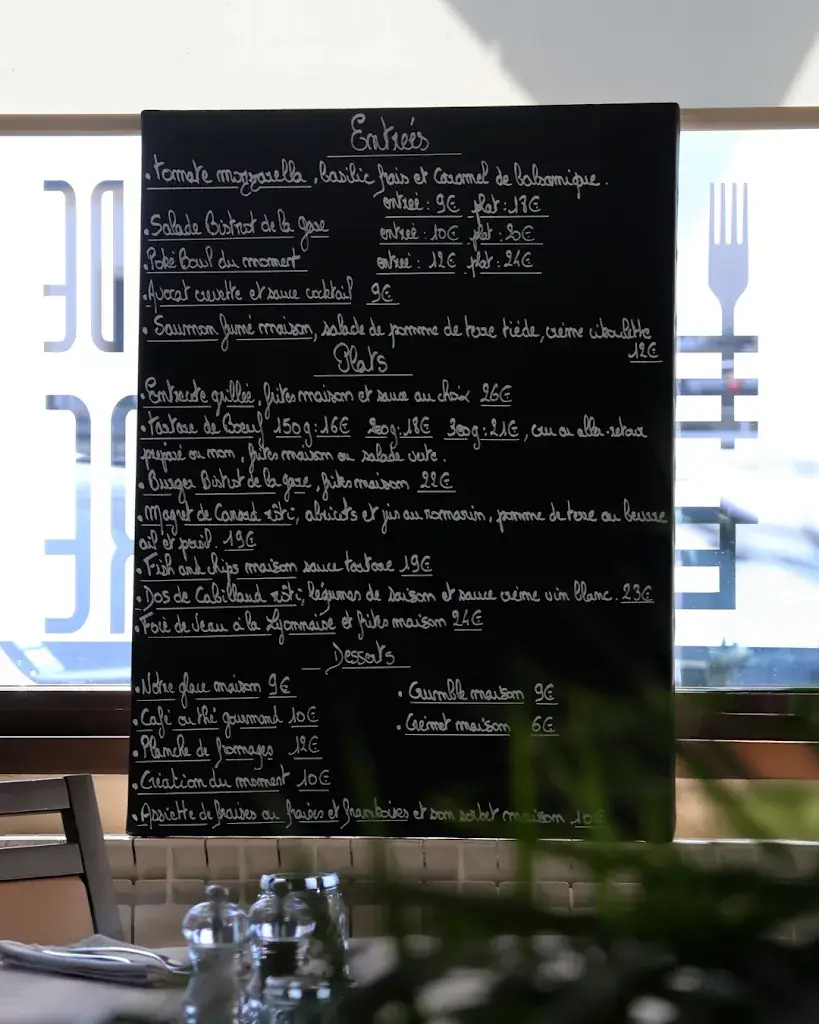 Entreés
• tomate mozzarella, basilic frais et Caramel de balsamique.
entreé : 9€ plat : 18€
• Salade Bistrot de la gare entreé : 10€ plat : 20€
• Poké Bowl du moment entreé : 12€ plat : 24€
• Avocat crevette et sauce cocktail 9€
• Saumon fumé maison, salade de pomme de terre tiède, crème ciboulette
12€
Plats
• Entrecote grilleé, frites maison et sauce au choix 26€
• tartare de Bœuf 150g : 16€ 200g : 18€ 300g : 21€, cru ou aller-retour
préparé ou non, frites maison ou salade verte.
• Burger Bistrot de la gare, frites maison 22€
• Magret de Canard rôti, abricots et jus au romarin, pomme de terre au beurre
ail et persil. 19€
• Fish and chips maison sauce tartare 19€
• Dos de Cabillaud rôti, légumes de saison et sauce crème vin blanc. 23€
• Foie de Veau à la Lyonnaise et frites maison 24€
Desserts
• Notre glace maison 9€ • Crumble maison 9€
• Café ou thé gourmand 10€ • Crémet maison 6€
• Planche de fromages 12€
• Création du moment 10€
• Assiette de fraises ou fraises et framboises et son sorbet maison 10€